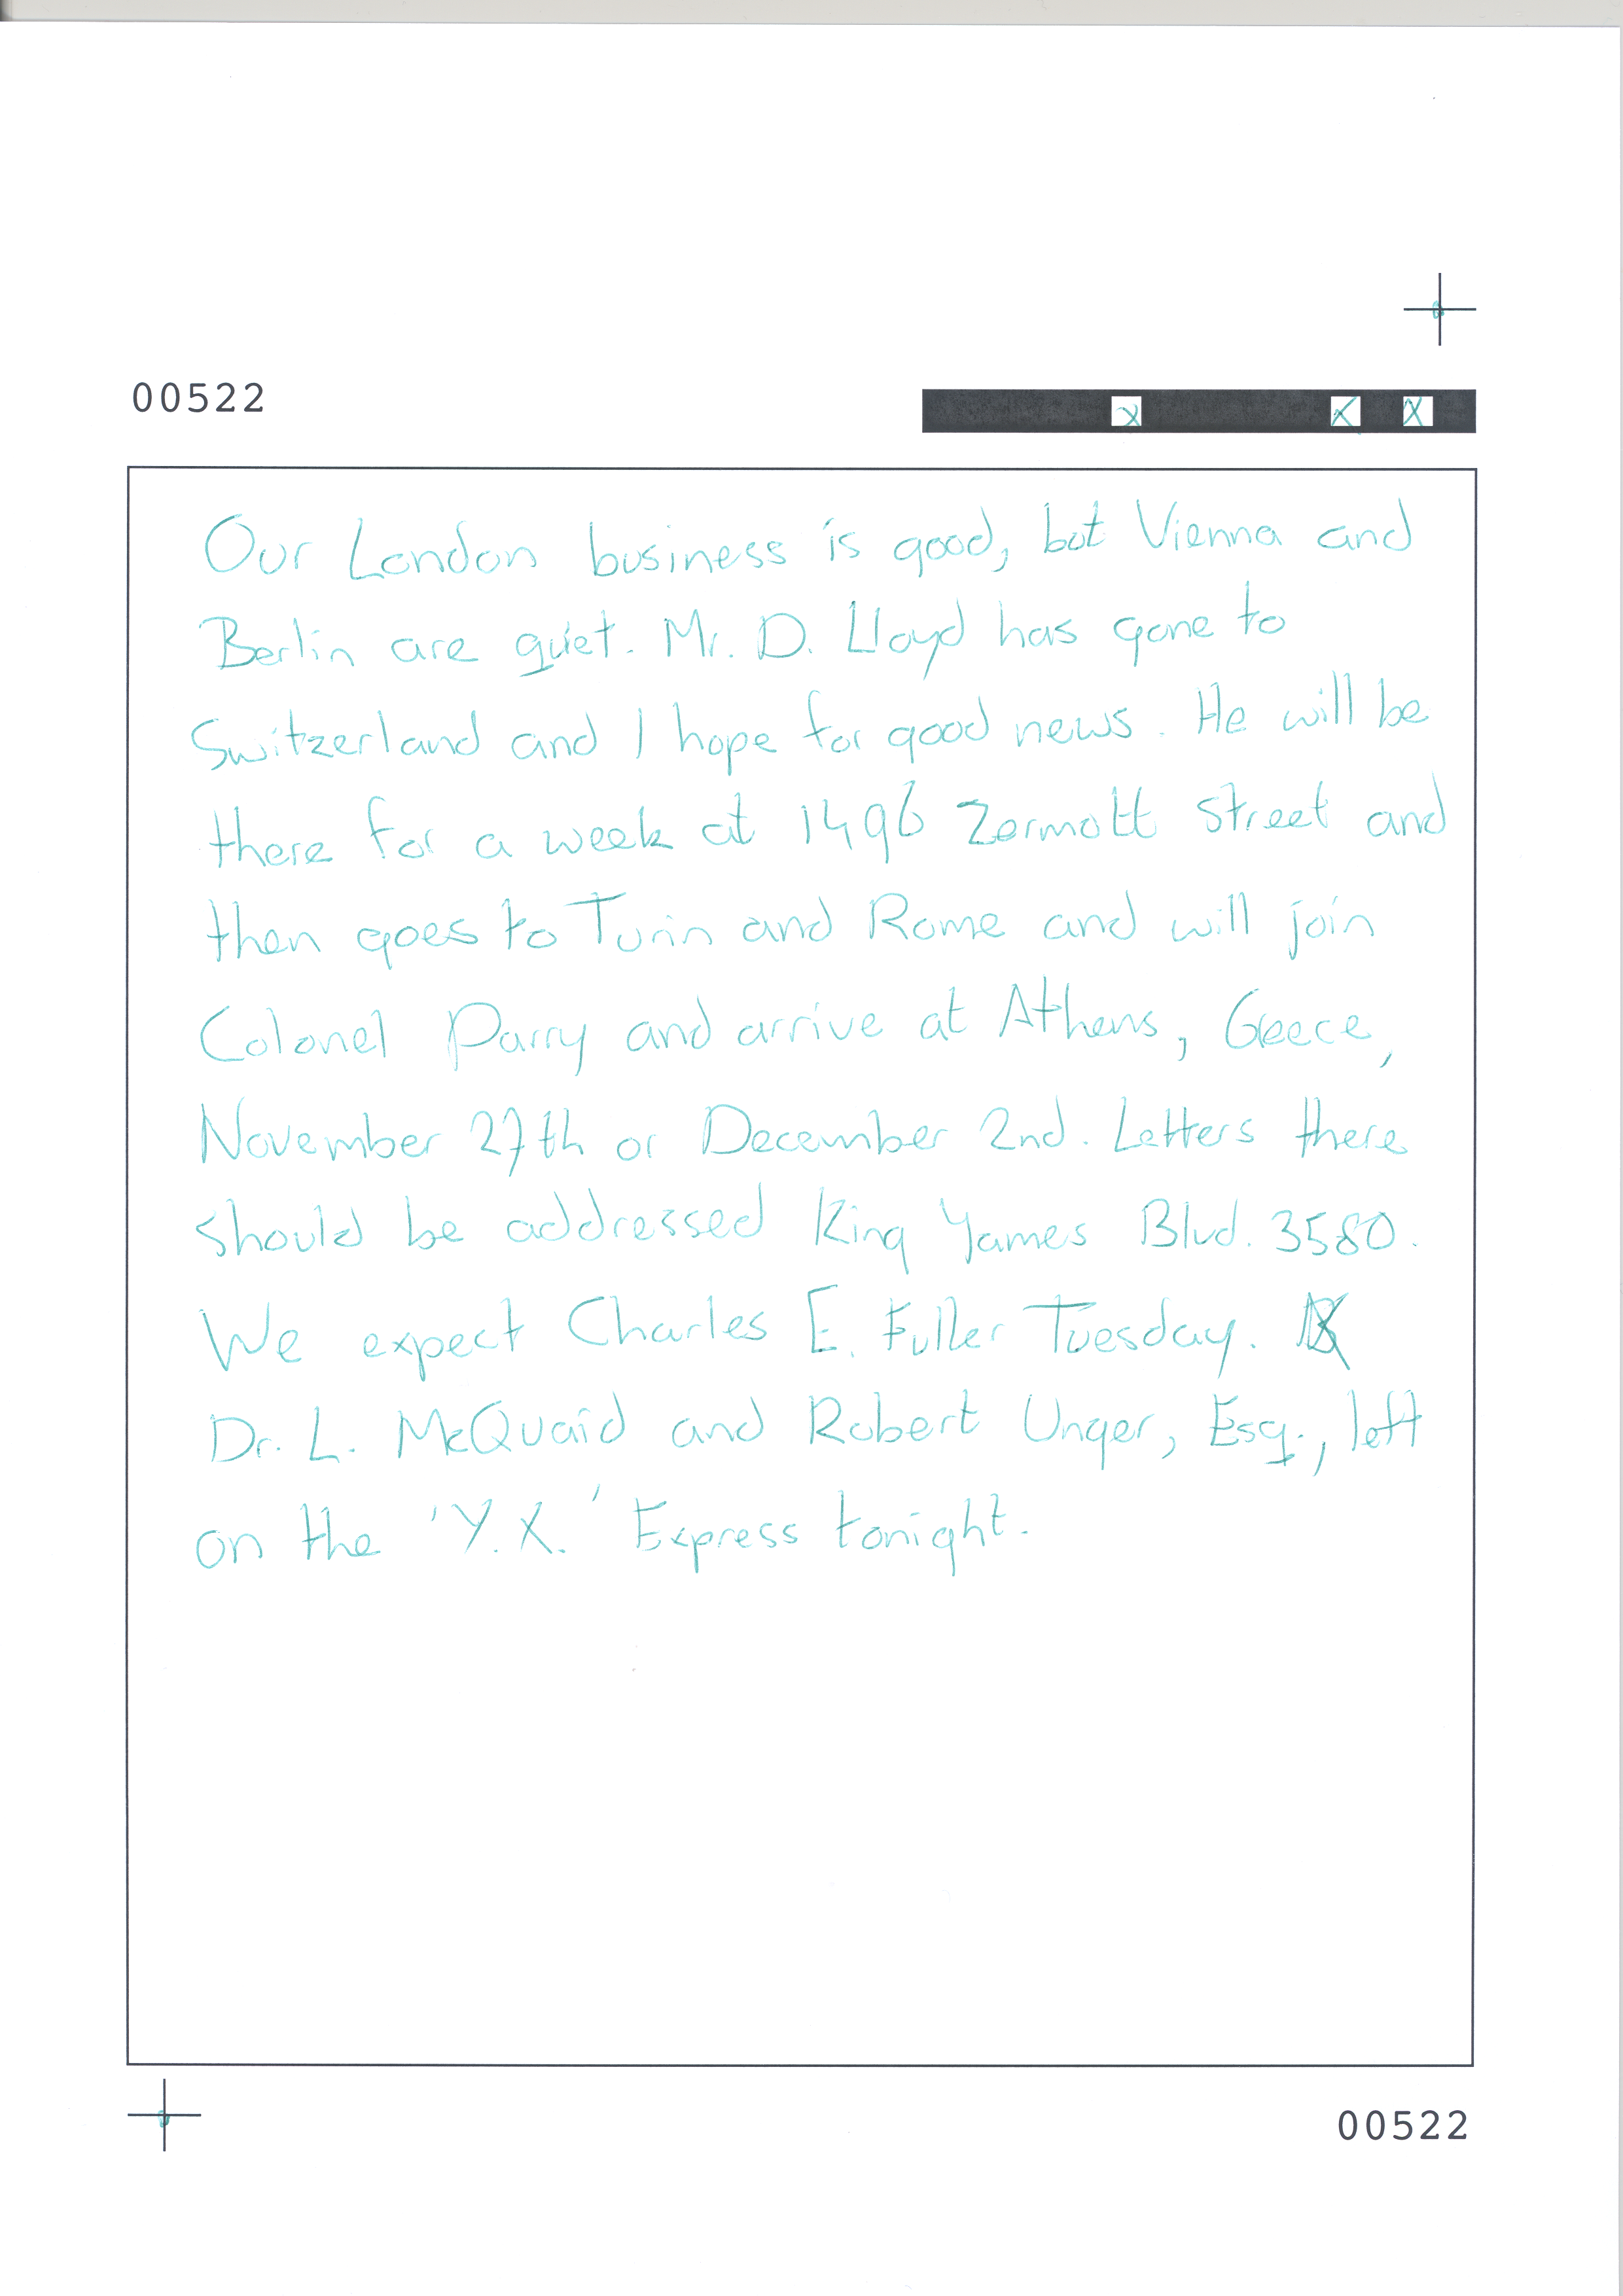 00522
Our London business is good, but Vienna and
Berlin are quiet. Mr. D. Lloyd has gone to
Switzerland and I hope for good news. He will be
there for a week at 1496 Zermott street and
then goes to Turin and Rome and will join
Colonel Parry and arrive at Athens, Greece,
November 27th or December 2nd. Letters there
should be addressed King Yames Blvd. 3580.
We expect Charles E. Fuller Tuesday.
Dr. L. McQuaid and Robert Unger, Esq., left
on the 'Y.X.' Express tonight.
00522